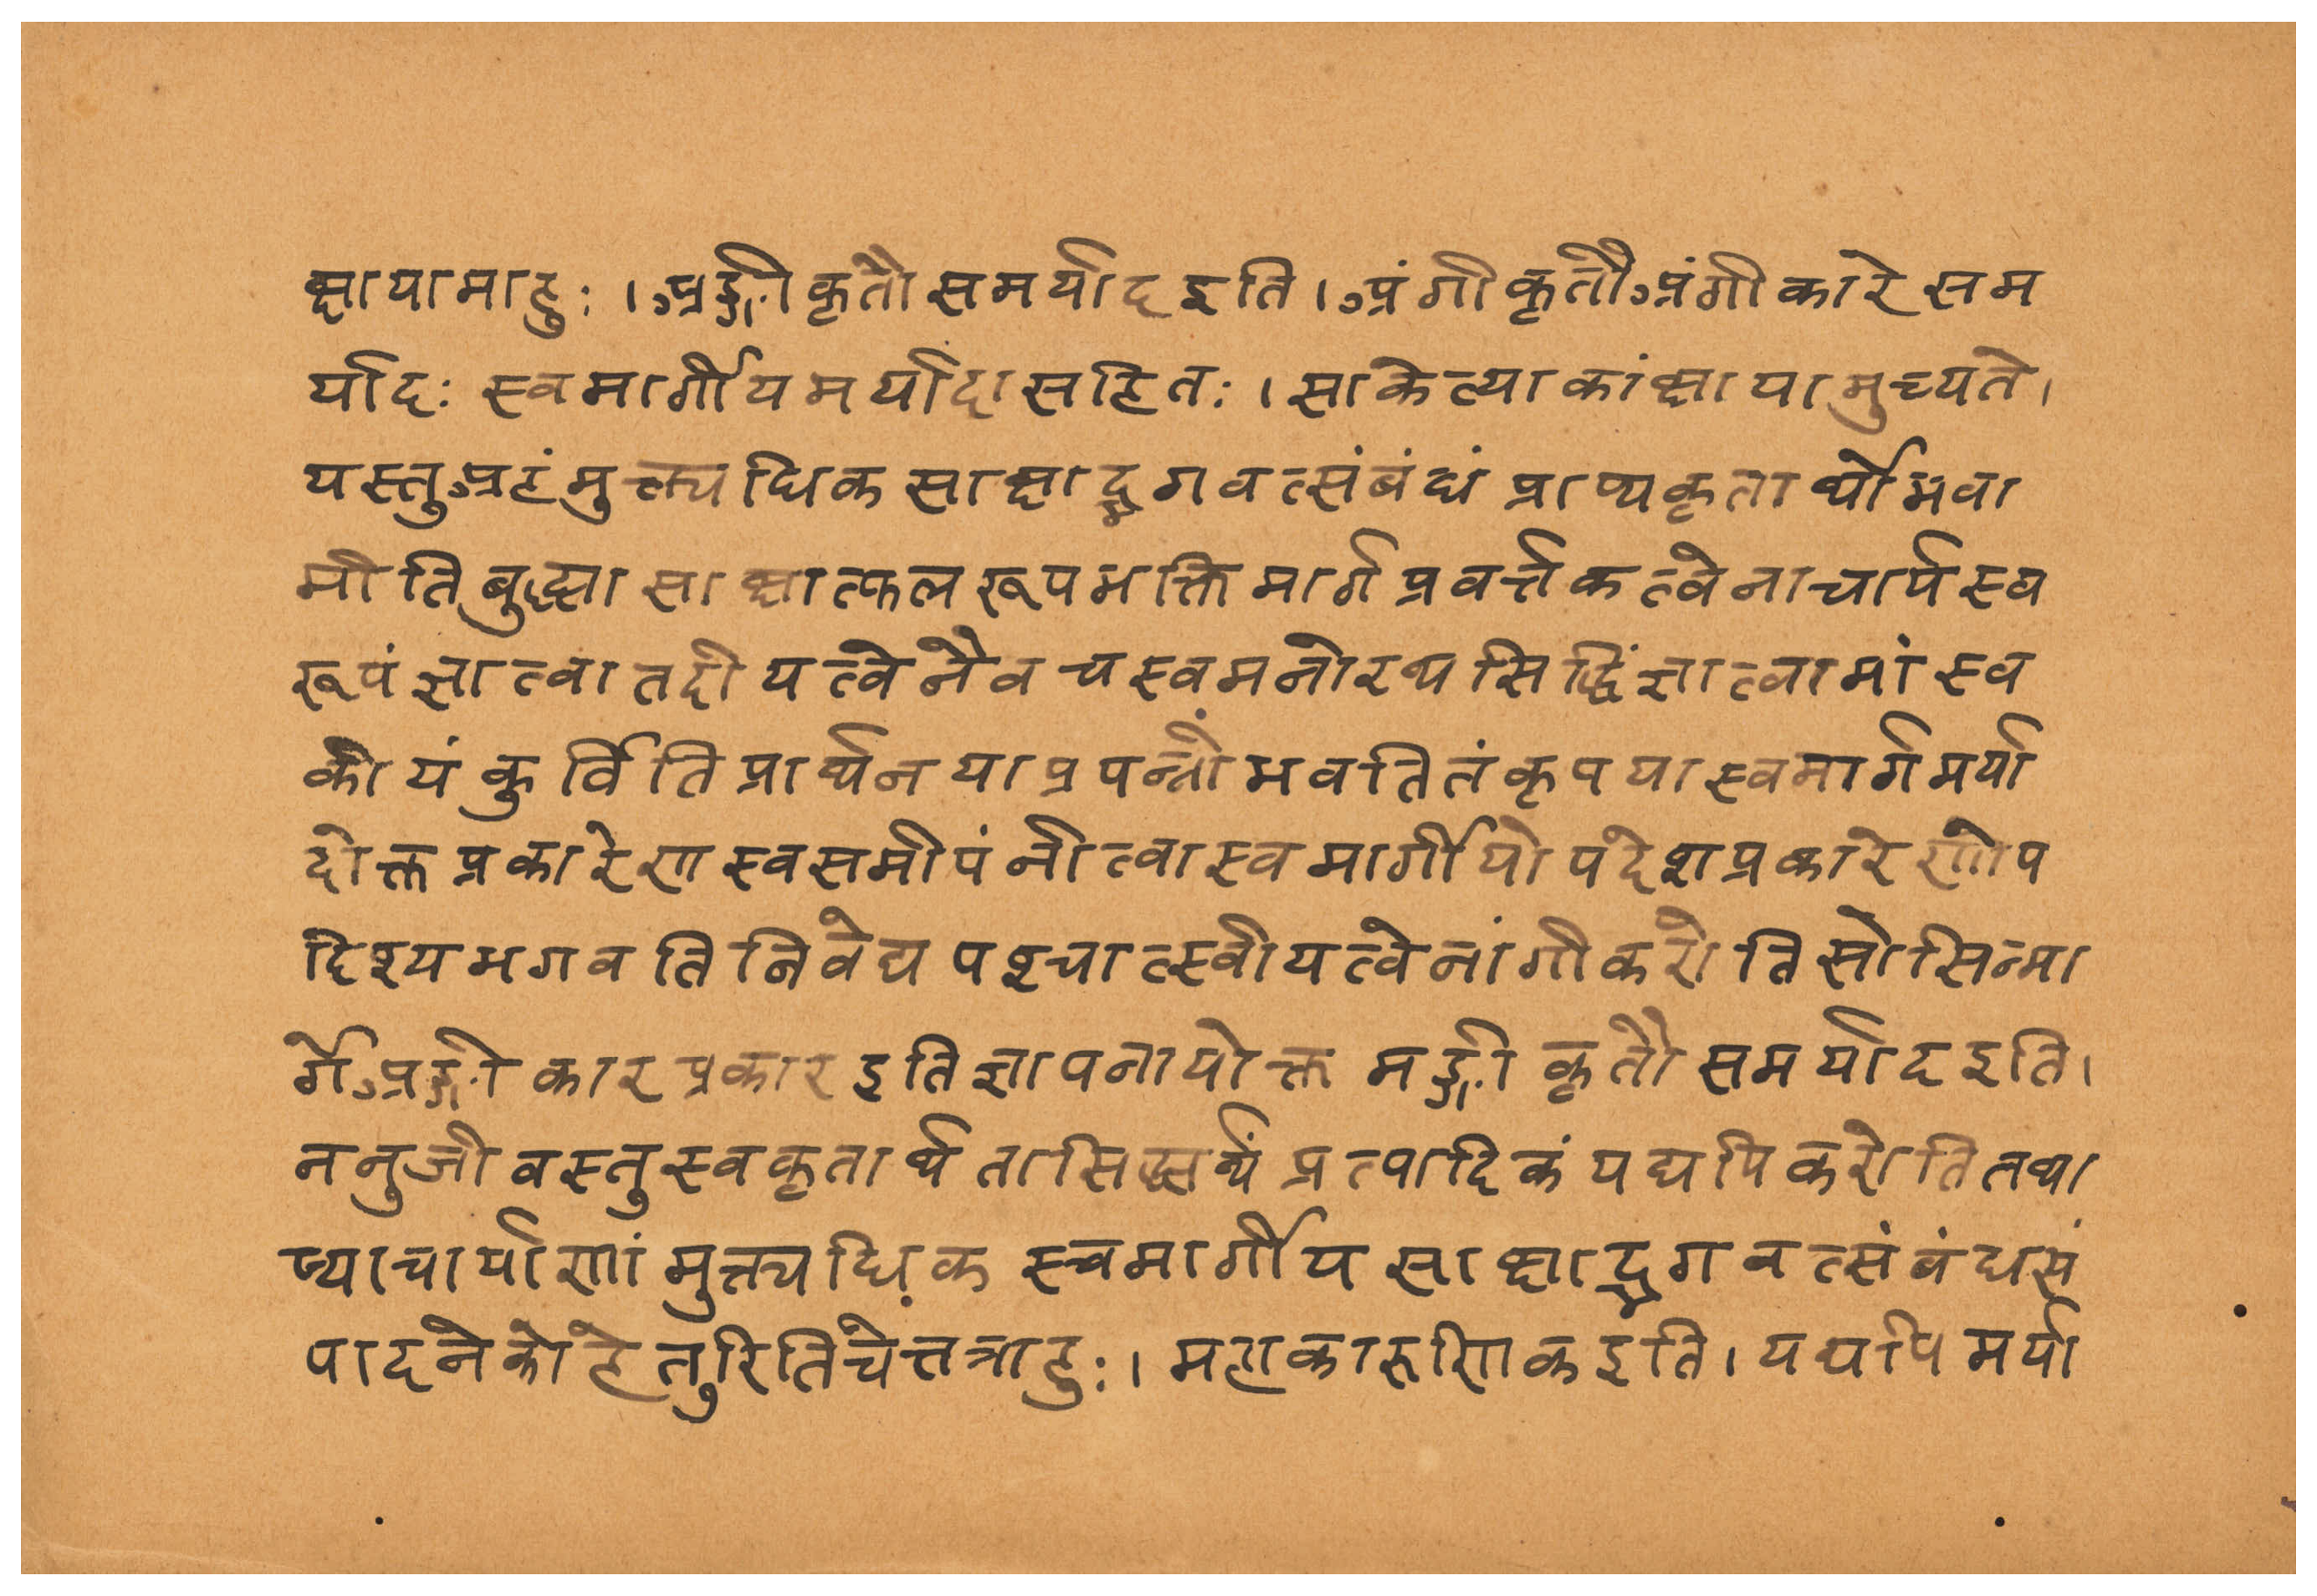 क्षायामाहुः । अङ्गीकृतौ समर्याद इति । अंगीकृतौ अंगीकारे सम
र्यादः स्वमार्गीयमर्यादासहितः । सा केत्याकांक्षायामुच्यते ।
यस्तु अहं मुक्त्यधिकसाक्षाद्भगवत्संबंधं प्राप्य कृतार्थो भवा
मीति बुद्ध्या साक्षात्फलरूपभक्तिमार्गप्रवर्त्तकत्वेनाचार्यस्व
रूपं ज्ञात्वा तदीयत्वेनैव च स्वमनोरथसिद्धिं ज्ञात्वा मां स्व
कीयं कुर्विति प्रार्थनया प्रपन्नो भवति तं कृपया स्वमार्गमर्या
दोक्तप्रकारेण स्वसमीपं नीत्वा स्वमार्गीयोपदेशप्रकारेणोप
दिश्य भगवति निवेद्य पश्चात्स्वीयत्वेनांगीकरोति सोस्मिन्मा
र्गे अङ्गीकारप्रकार इति ज्ञापनायोक्तमङ्गीकृतौ समर्याद इति ।
ननु जीवस्तु स्वकृतार्थतासिद्ध्यर्थं प्रत्पादिकं यद्यपि करोति तथा
प्याचार्याणां मुक्त्यधिकस्वमार्गीयसाक्षाद्भगवत्संबंधसं
पादने को हेतुरिति चेत्तत्राहुः । महाकारुणिक इति । यद्यपि मर्या